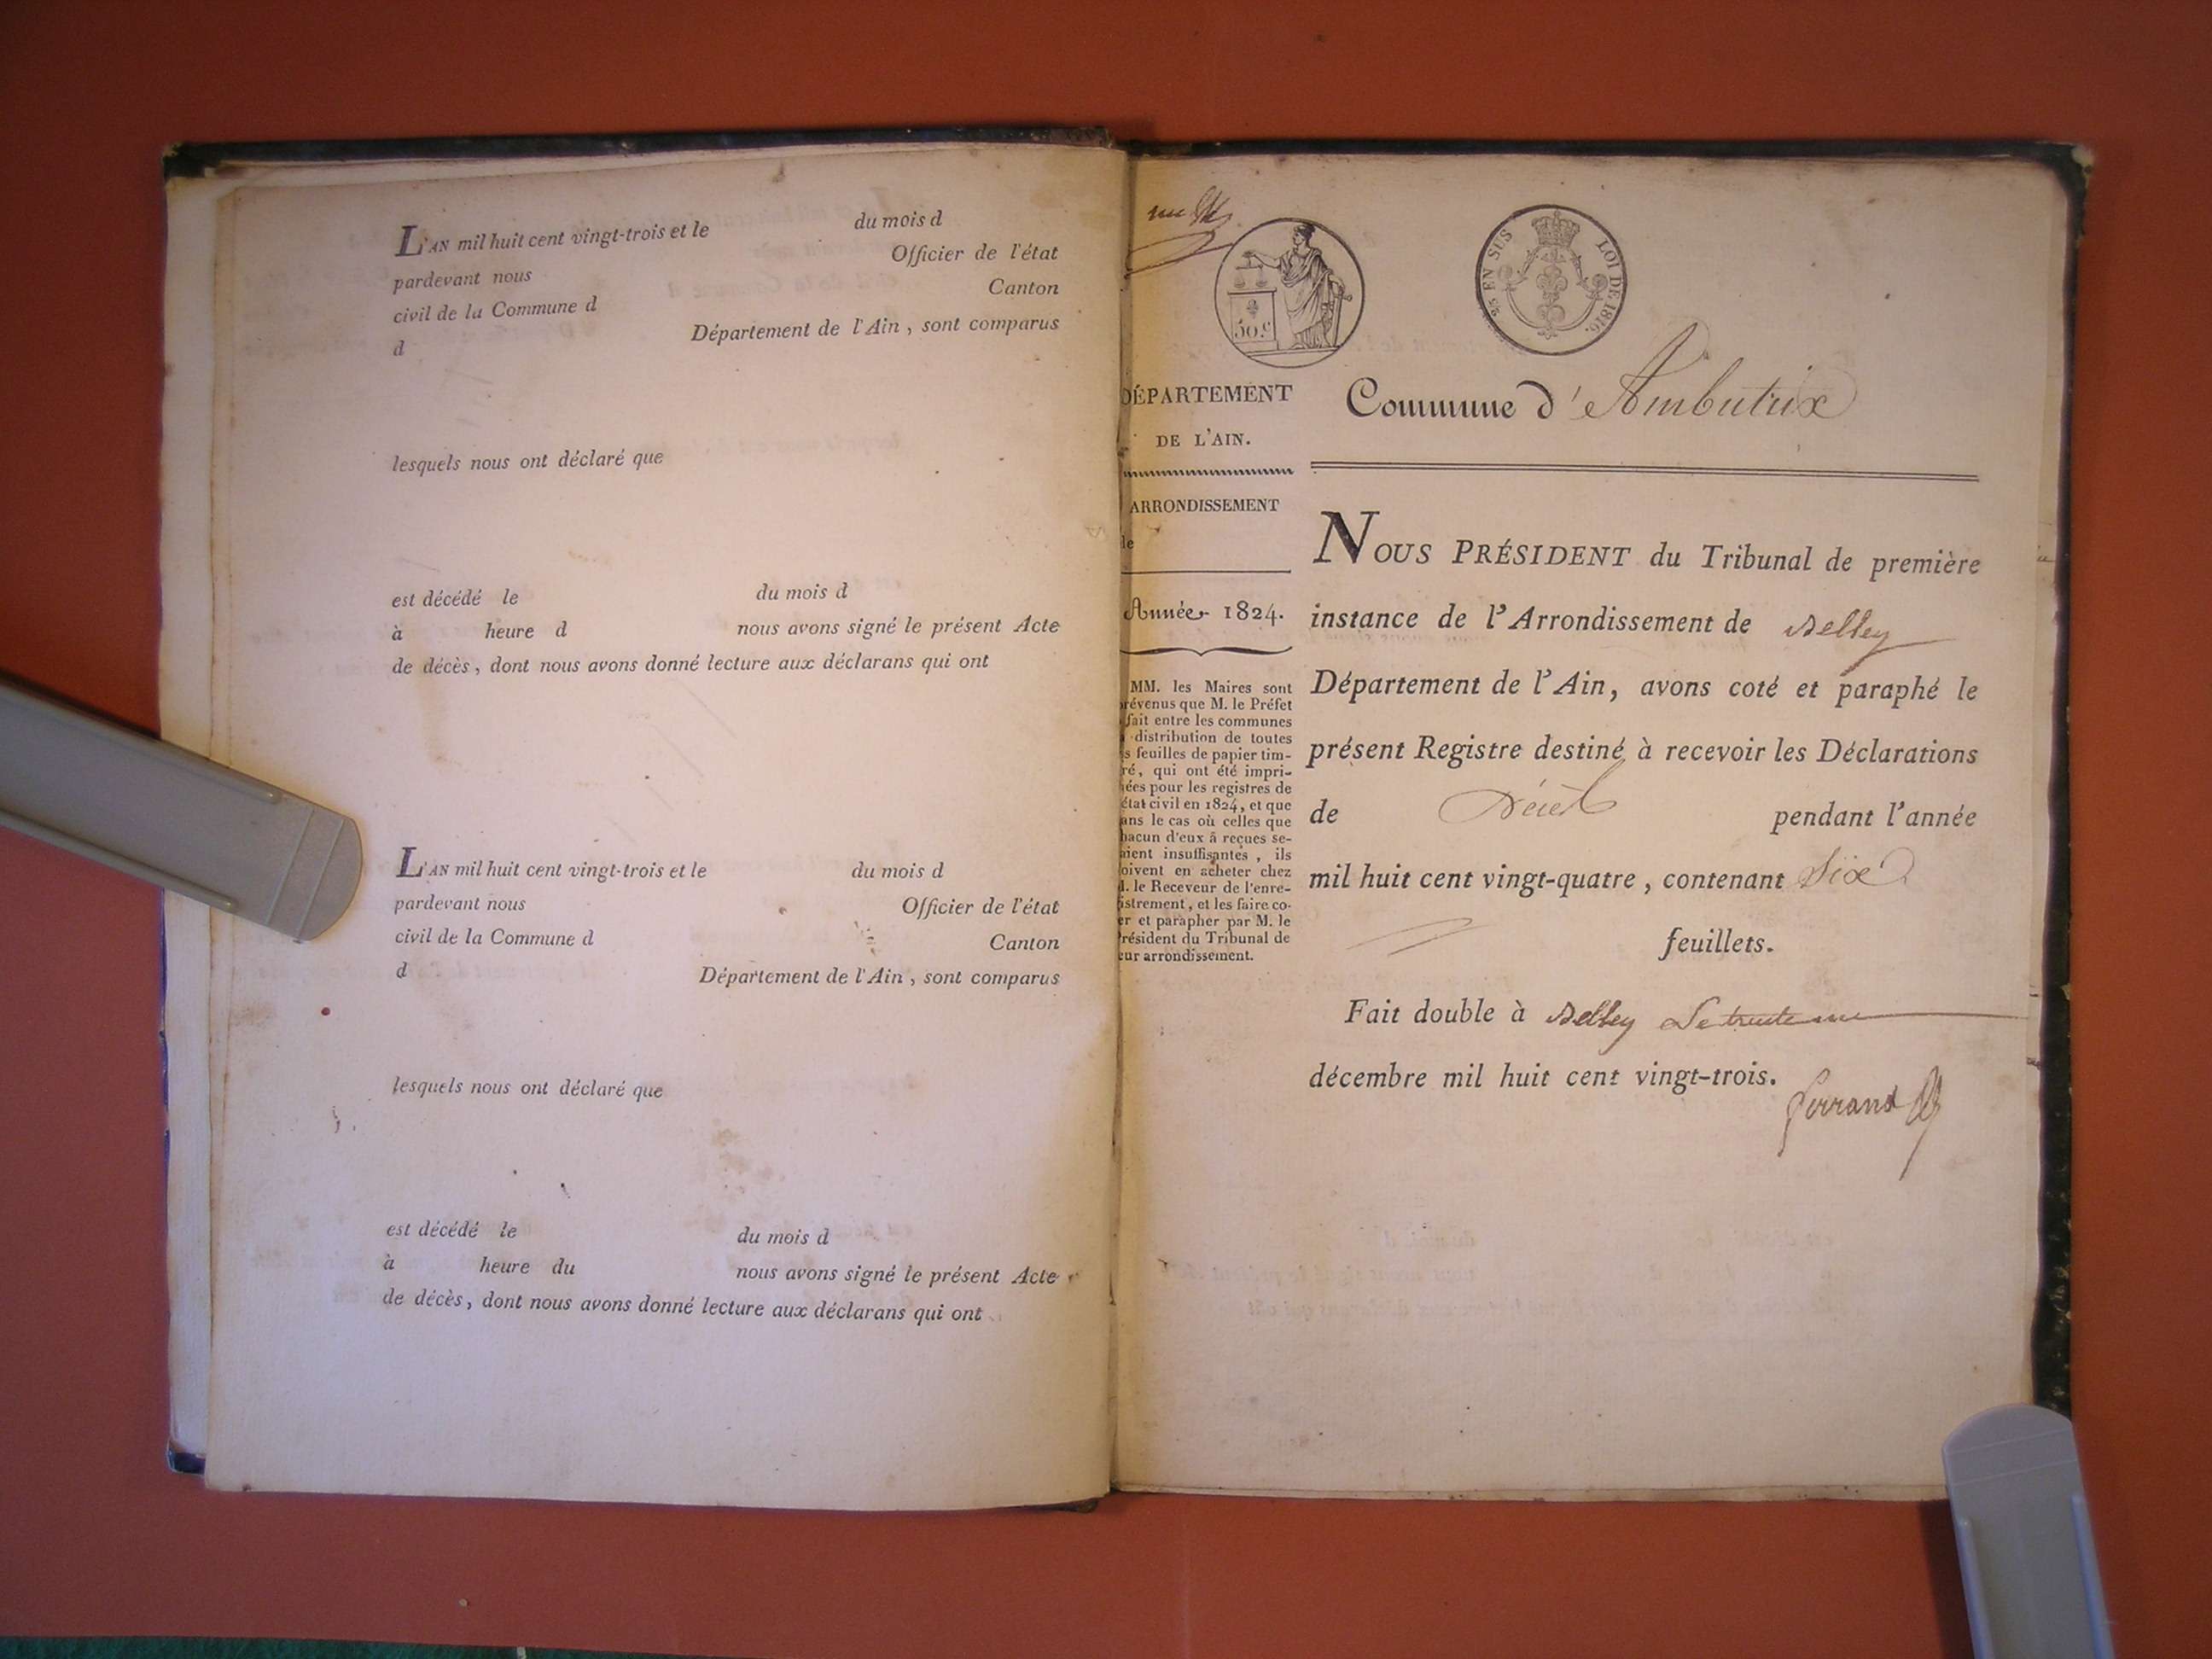 L'AN mil huit cent vingt-trois et le du mois d
pardevant nous Officier de l'état
civil de la Commune d Canton
d Département de l'Ain, sont comparus
lesquels nous ont déclaré que
est décédé le du mois d
à heure d nous avons signé le présent Acte
de décès, dont nous avons donné lecture aux déclarans qui ont
L'AN mil huit cent vingt-trois et le du mois d
pardevant nous Officier de l'état
civil de la Commune d Canton
d Département de l'Ain, sont comparus
lesquels nous ont déclaré que
est décédé le du mois d
à heure du nous avons signé le présent Acte
de décès, dont nous avons donné lecture aux déclarans qui ont
50 c
EN SUS LOI DE 1816.
DÉPARTEMENT
DE L'AIN.
ARRONDISSEMENT
de
Année 1824.
MM. les Maires sont
prévenus que M. le Préfet
fait entre les communes
distribution de toutes
s feuilles de papier tim-
ré, qui ont été impri-
ées pour les registres de
état civil en 1824, et que
ans le cas où celles que
hacun d'eux â reçues se-
aient insuffisantes, ils
oivent en acheter chez
M. le Receveur de l'enre-
istrement, et les faire co-
er et parapher par M. le
Président du Tribunal de
eur arrondissement.
Commune d'Ambutrix
NOUS PRÉSIDENT du Tribunal de première
instance de l'Arrondissement de Belley
Département de l'Ain, avons coté et paraphé le
présent Registre destiné à recevoir les Déclarations
de Décès pendant l'année
mil huit cent vingt-quatre, contenant Six
feuillets.
Fait double à Belley Le trente un
décembre mil huit cent vingt-trois.
Perrand